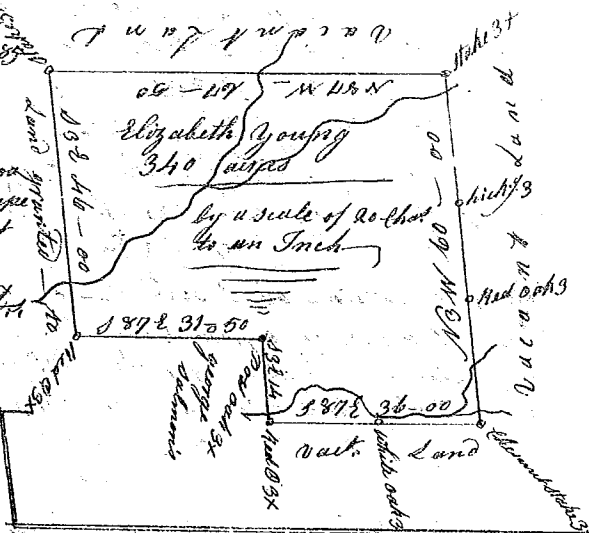 Vacant Land
Stake 3x
N 87 W - 67 - 50
Elizabeth Young
340 acres
by a scale of 20 Chas
to an Inch
S 3 E 46 - 00
Land granted to
N 3 W 60 - 00
hicky 3
Red oak 3
Vacant Land
S 87 E 31 - 50
Red O 3x
S 3 E 14
Post oak 3x
george
Salmons
Red O 3x
S 87 E 36 - 00
Vact. Land
White oak 3
Stake 3